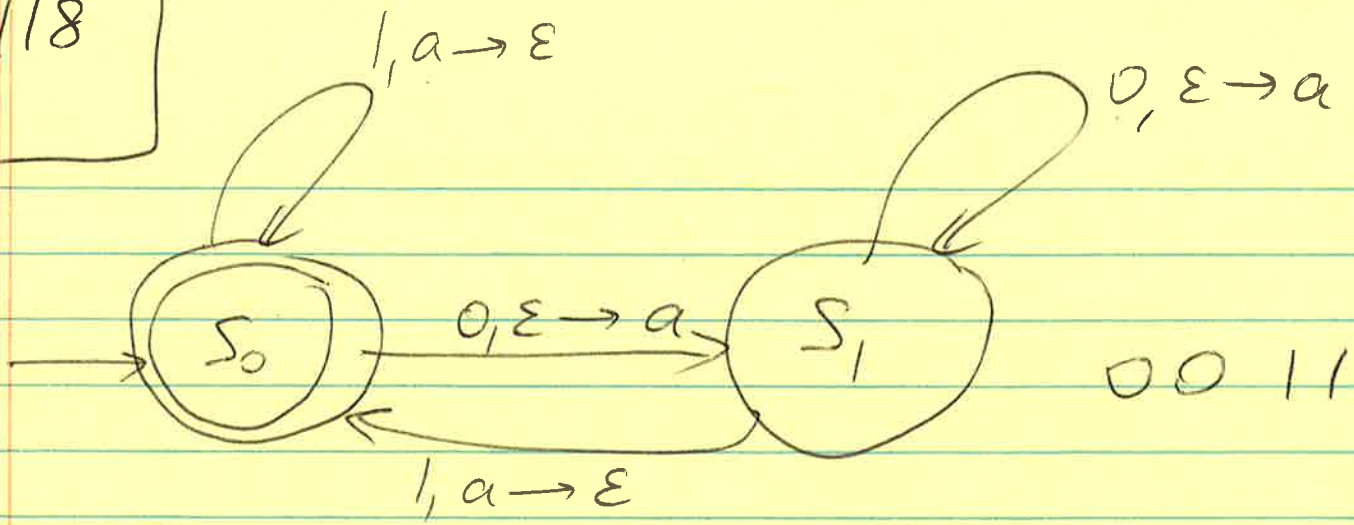 /18
1, a → ε
0, ε → a
S₀
0, ε → a
S₁
0 0 1 1
1, a → ε